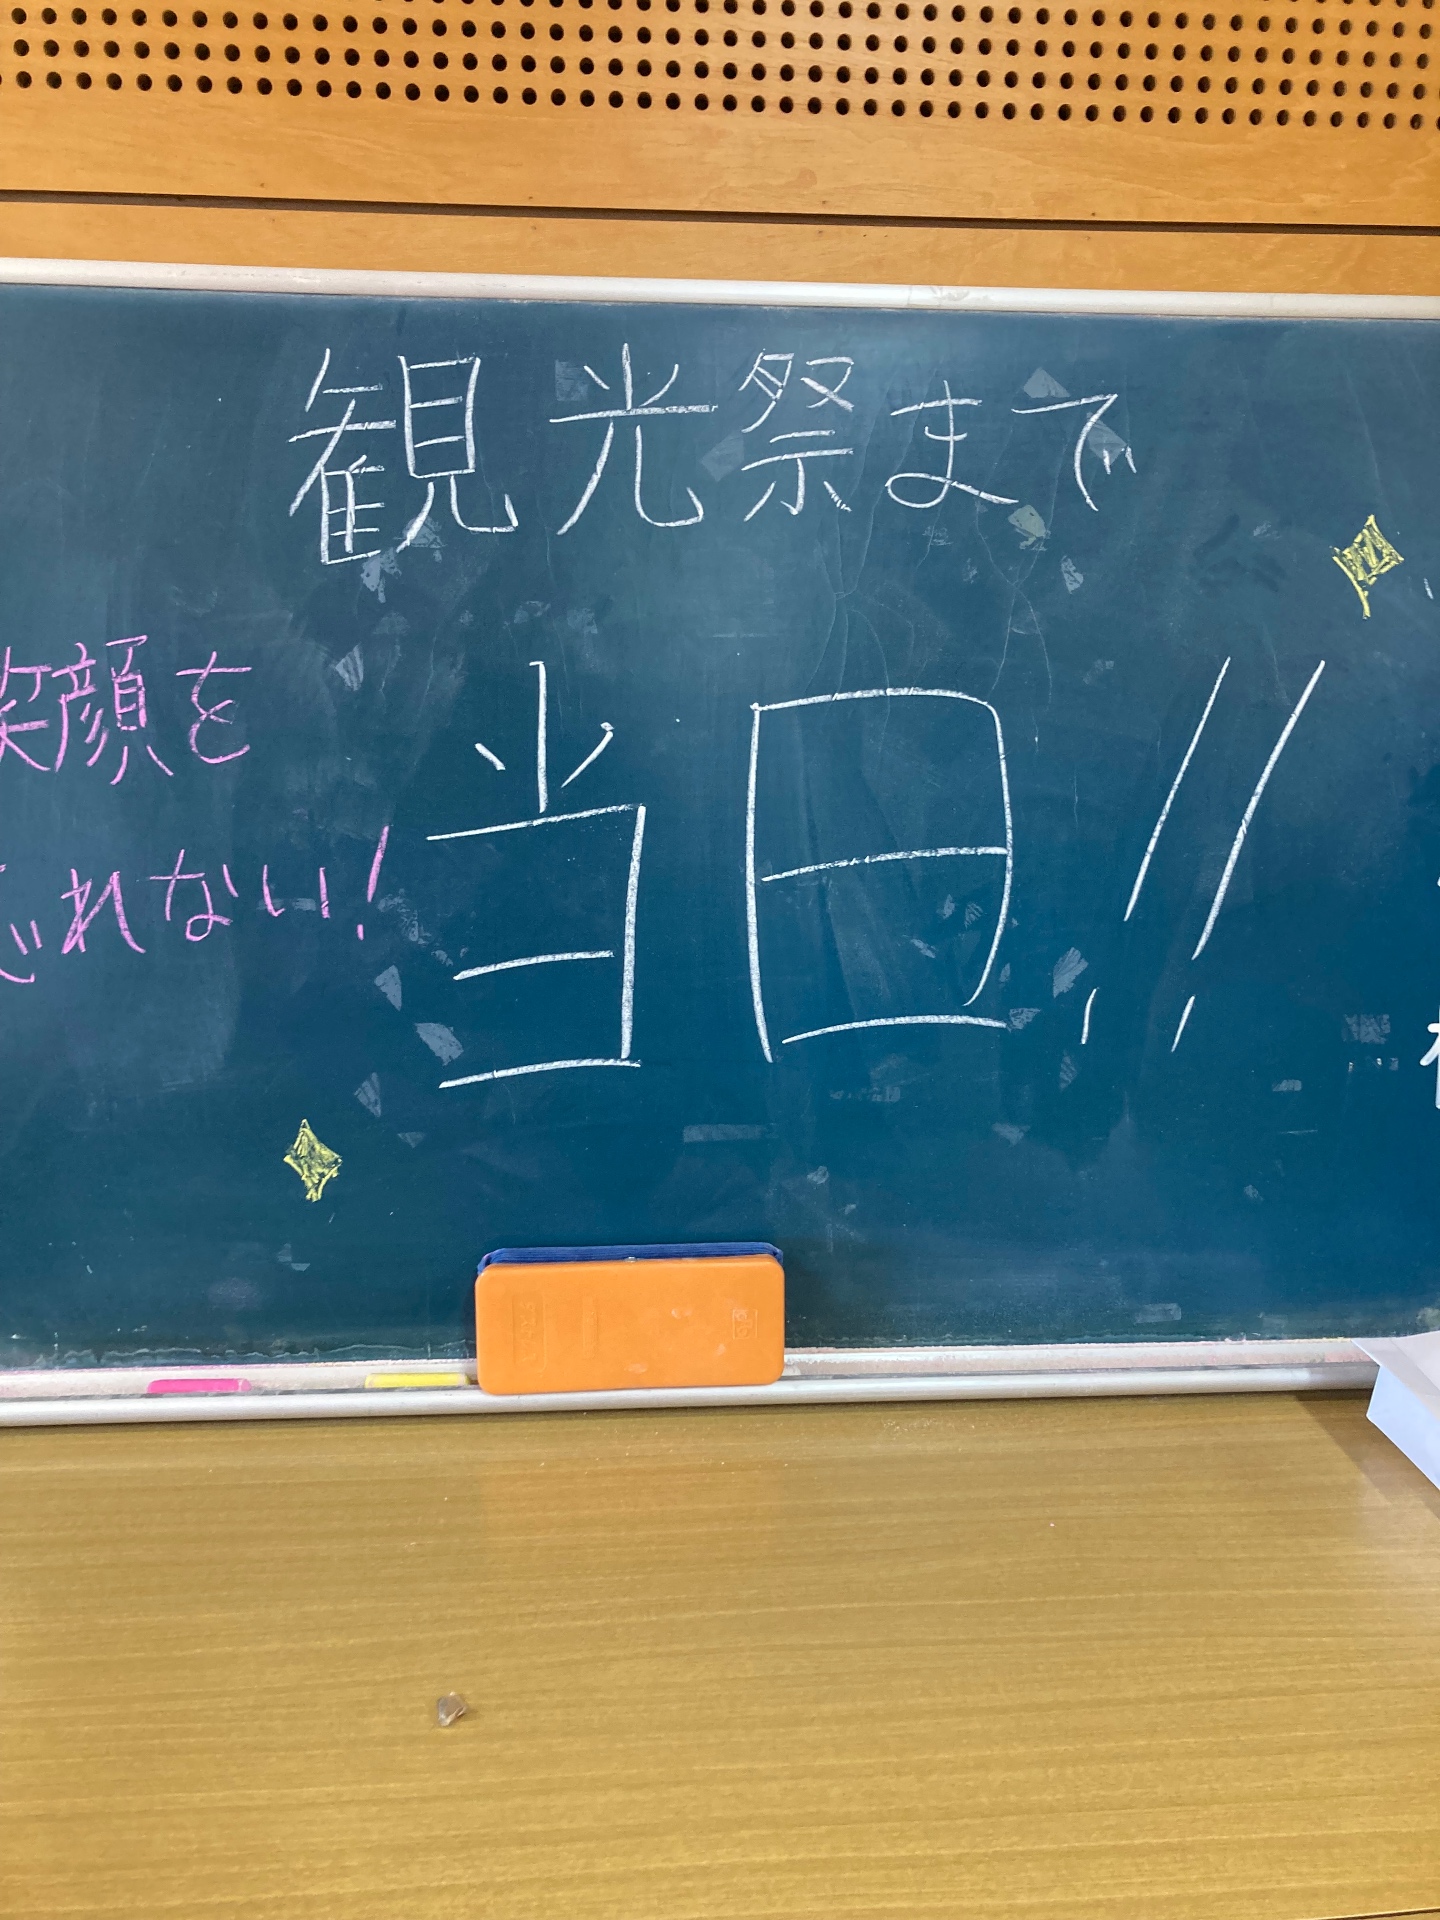 観光祭まで
笑顔を
れない！
当日!!